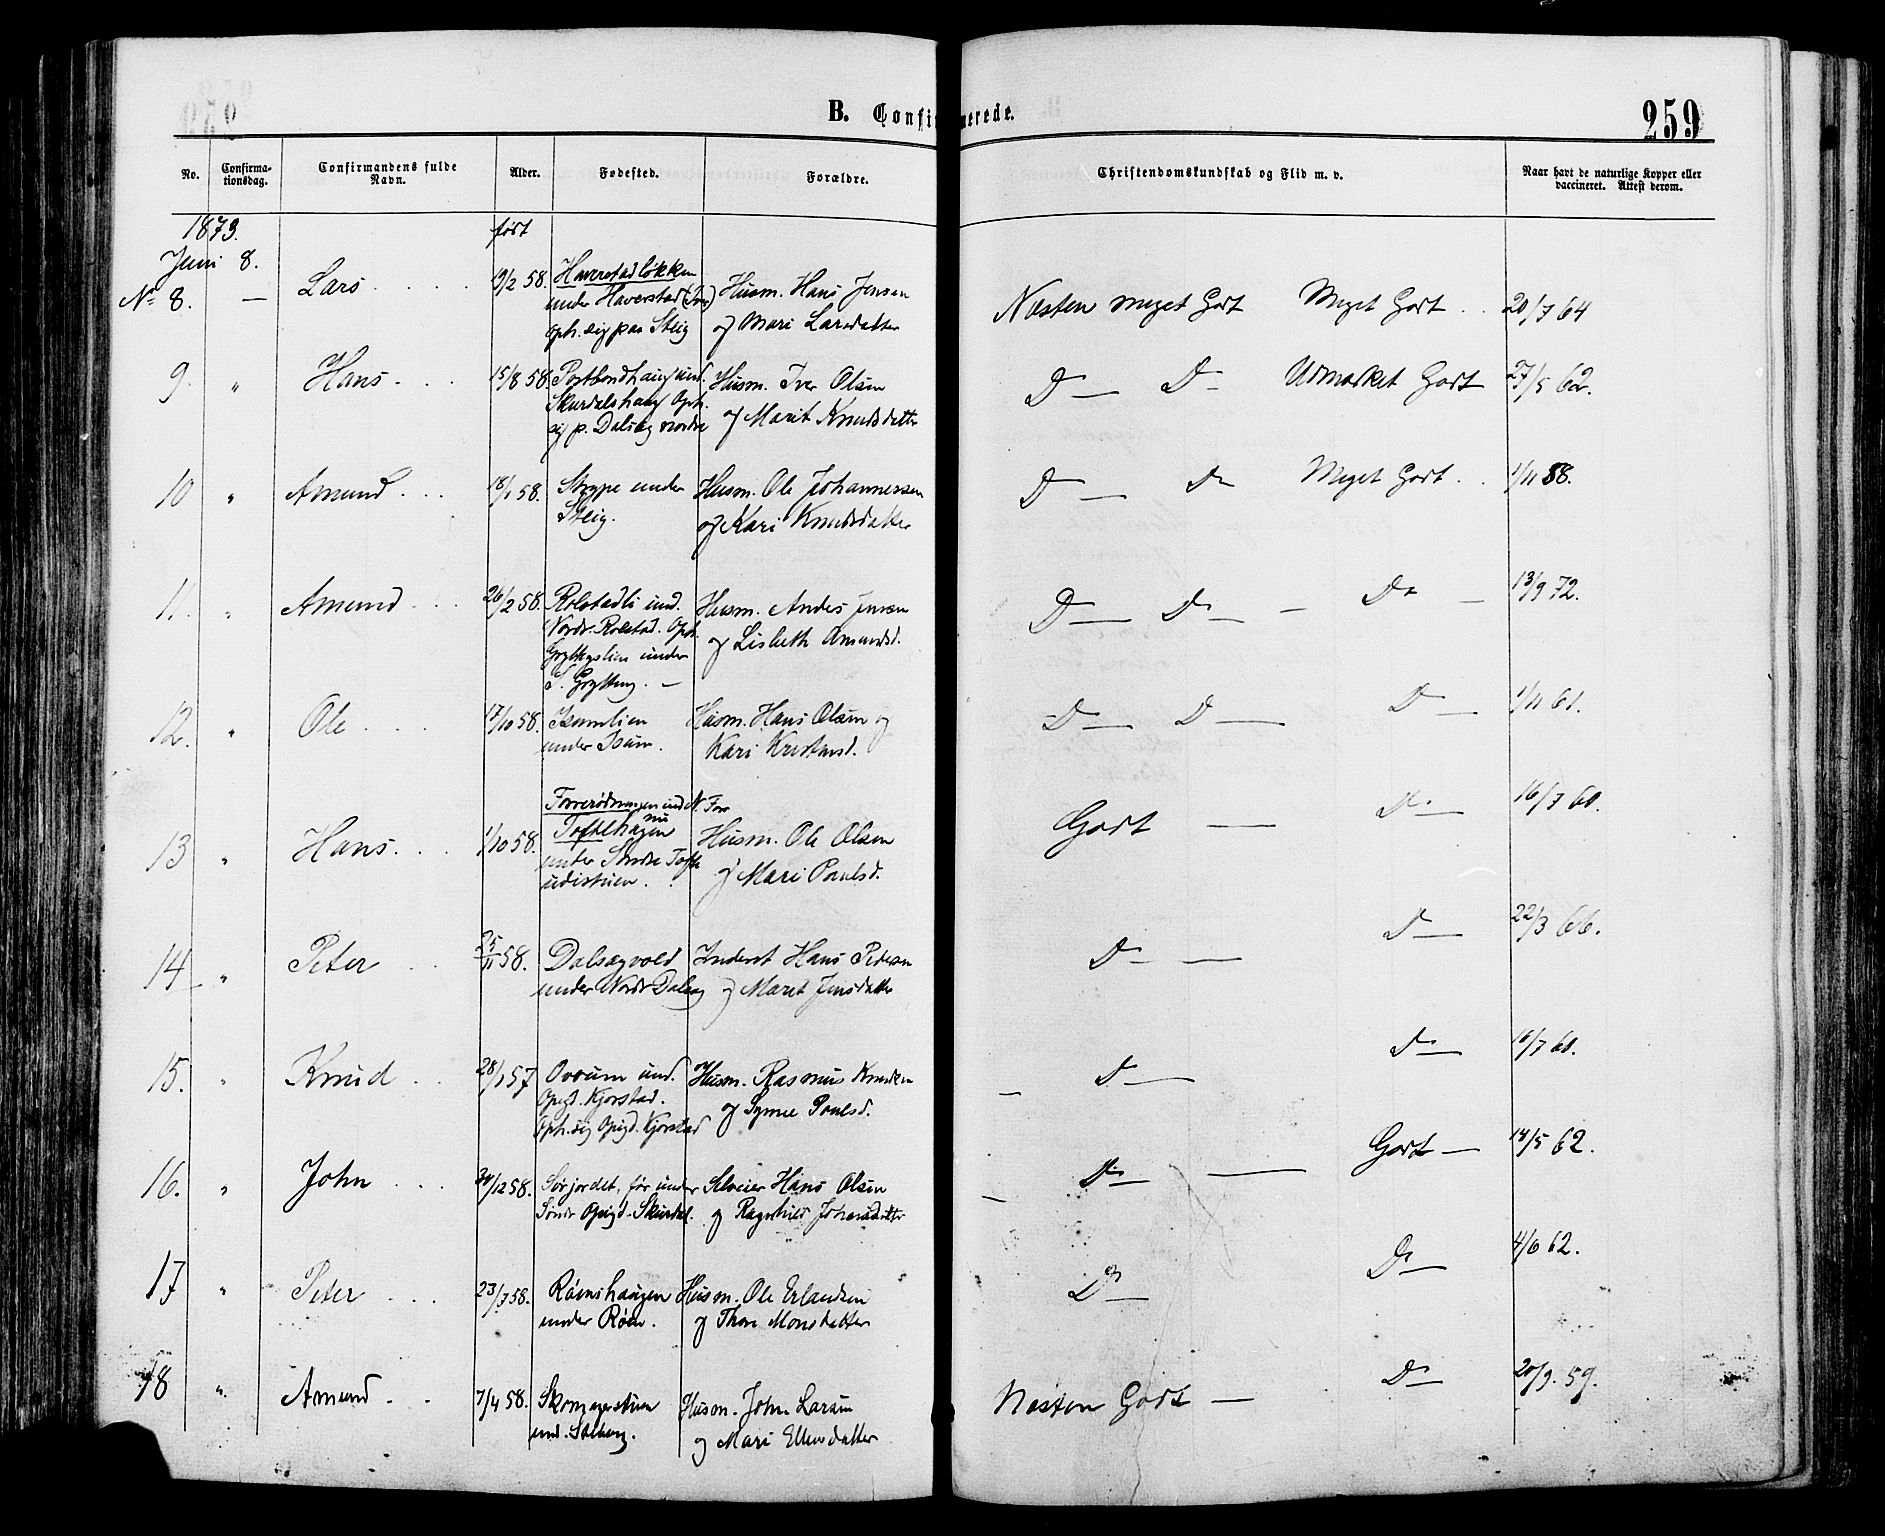 B. Confirmerede.
259
No.
Confirma-
tionsdag.
Confirmandens fulde
Navn.
Alder.
Fødested.
Forældre.
Christendomskundskab og Flid m. v.
Naar havt de naturlige Kopper eller
vaccineret. Attest derom.
1873.
født
Juni 8.
No 8. — Lars 9/2 58. Haverstadløkken
under Haverstad
Oph. sig paa Steig
Husm. Hans Jensen
og Mari Larsdatter
Næsten meget Godt Meget Godt 20/7 64
9. " Hans 15/8 58
Skurdalshaug Oph.
sig p. Dalseg nordre
Husm. Iver Olsen
og Marit Knudsdatter
D — D — Udmærket Godt 27/5 62.
10 " Amund 18/1 58. Skrype under
Steig.
Husm. Ole Johannessen
og Kari Knudsdatter
D — Do Meget Godt 1/11 58.
11. " Amund 26/2 58. Rolstadli und.
Nordr. Rolstad. Oph.
under
S. Grytting. —
Husm. Andes Jensen
og Lisbeth Amundsd.
D — Do — Do — 13/9 72.
12. " Ole 17/10 58. Isumlien
under Isum.
Husm. Hans Olsen og
Kari Kristensd.
D — D — D — 1/11 61.
13 " Hans 1/10 58. und N. For
nu
Toftehagen
under Søndre Tofte
Husm. Ole Olsen
og Mari Poulsd.
Godt — D — 16/7 60.
14 " Peter 25/11 58. Dalsegvold
under Nordr Dalseg
Inderst Hans Pedersen
og Marit Jensdatter
D — D — 22/3 66.
15. " Knud 28/1 57 Ovrum und.
Opigd. Kjorstad.
Oph. sig Opigd. Kjorstad
Husm. Rasmus Knudsen
og Synne Poulsd.
— D — D — 16/7 60.
16. " John 30/12 58. Sørjordet, før under
Søndr Opigd. Skurdal.
Selveier Hans Olsen
og Ragnhild Johansdatter
— D — Godt — 14/5 62.
17 " Peter 23/7 58. Røinshaugen
under Røin.
Husm. Ole Erlandsen
og Thore Monsdatter
D — Do — 4/6 62.
18 " Amund 7/4 58.
und. Solberg.
Husm. John Larsen
og Mari Ellensdatter
Næsten Godt — D — 20/9. 59.